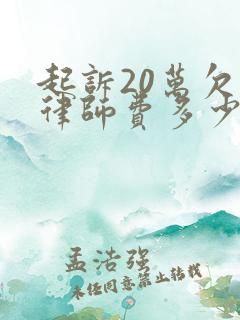 起訴20萬欠
律師費多少
孟浩强
未经同意禁止转载